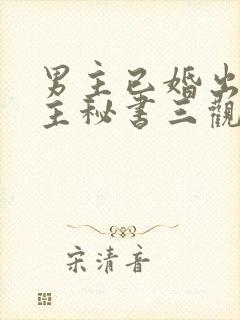 男主已婚出
主秘書三觀
宋清音